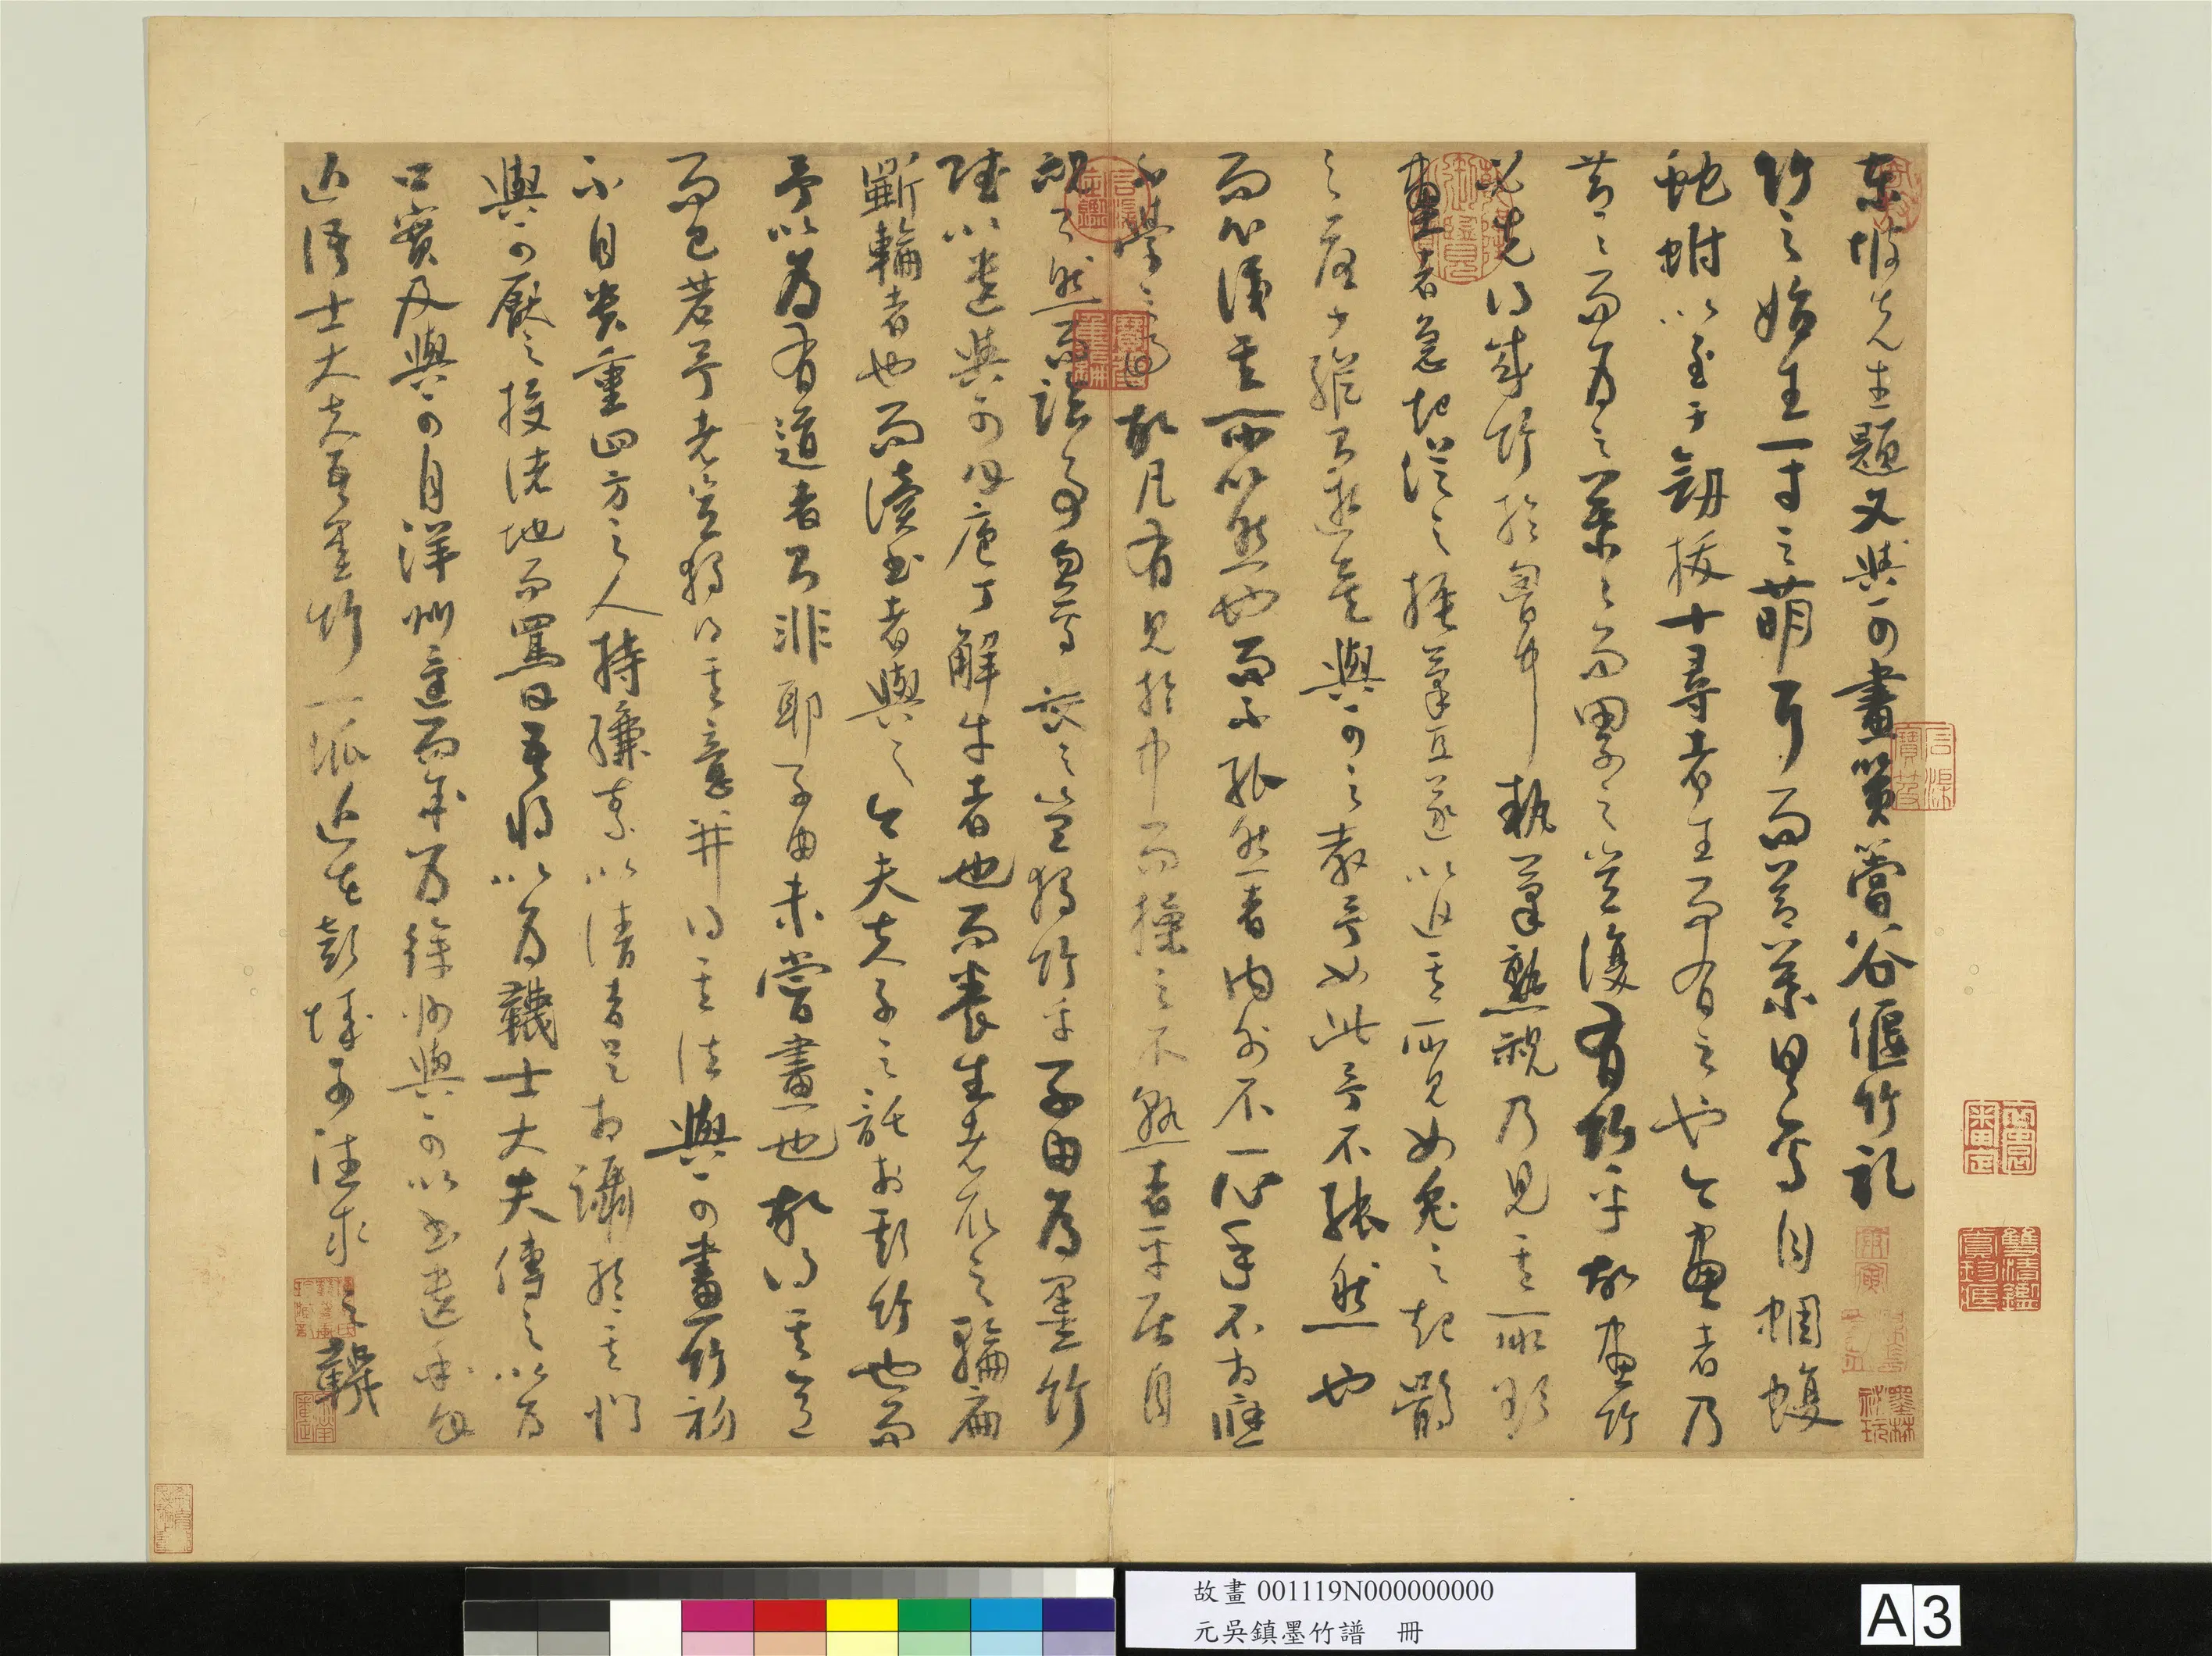 東坡先生題文與可畫篔簹谷偃竹記
竹之始生一寸之萌耳而節葉具焉自蜩蝮
蛇蚹以至于劒拔十尋者生而有之也今畫者乃
節節而為之葉葉而累之豈復有竹乎故畫竹
必先得成竹於胸中執筆熟視乃見其所欲
畫者急起從之振筆直遂以追其所見如兔之起鶻
之落少縱即逝矣與可之教予如此予不能然也
而心識其所以然也而不能然者內外不一心手不相應
不學之過也故凡有見於中而操之不熟者平居自
視了然而臨事忽焉喪之豈獨竹乎子由為墨竹
賦以遺與可曰庖丁解牛者也而養生者取之輪扁
斲輪者也而讀書者與之今夫夫子之託於斯竹也而
予以為有道者則非耶子由未嘗畫也故得其意
而已若予者豈獨得其意并得其法與可畫竹初
不自貴重四方之人持縑素以請者足相躡於其門
與可厭之投諸地而罵曰吾將以為韈士大夫傳之以為
口實及與可自洋州還而余為徐州與可以書遺余曰
近語士大夫吾墨竹一派近在彭城可往求之韈
故畫 001119N000000000
元吳鎮墨竹譜 冊
A 3